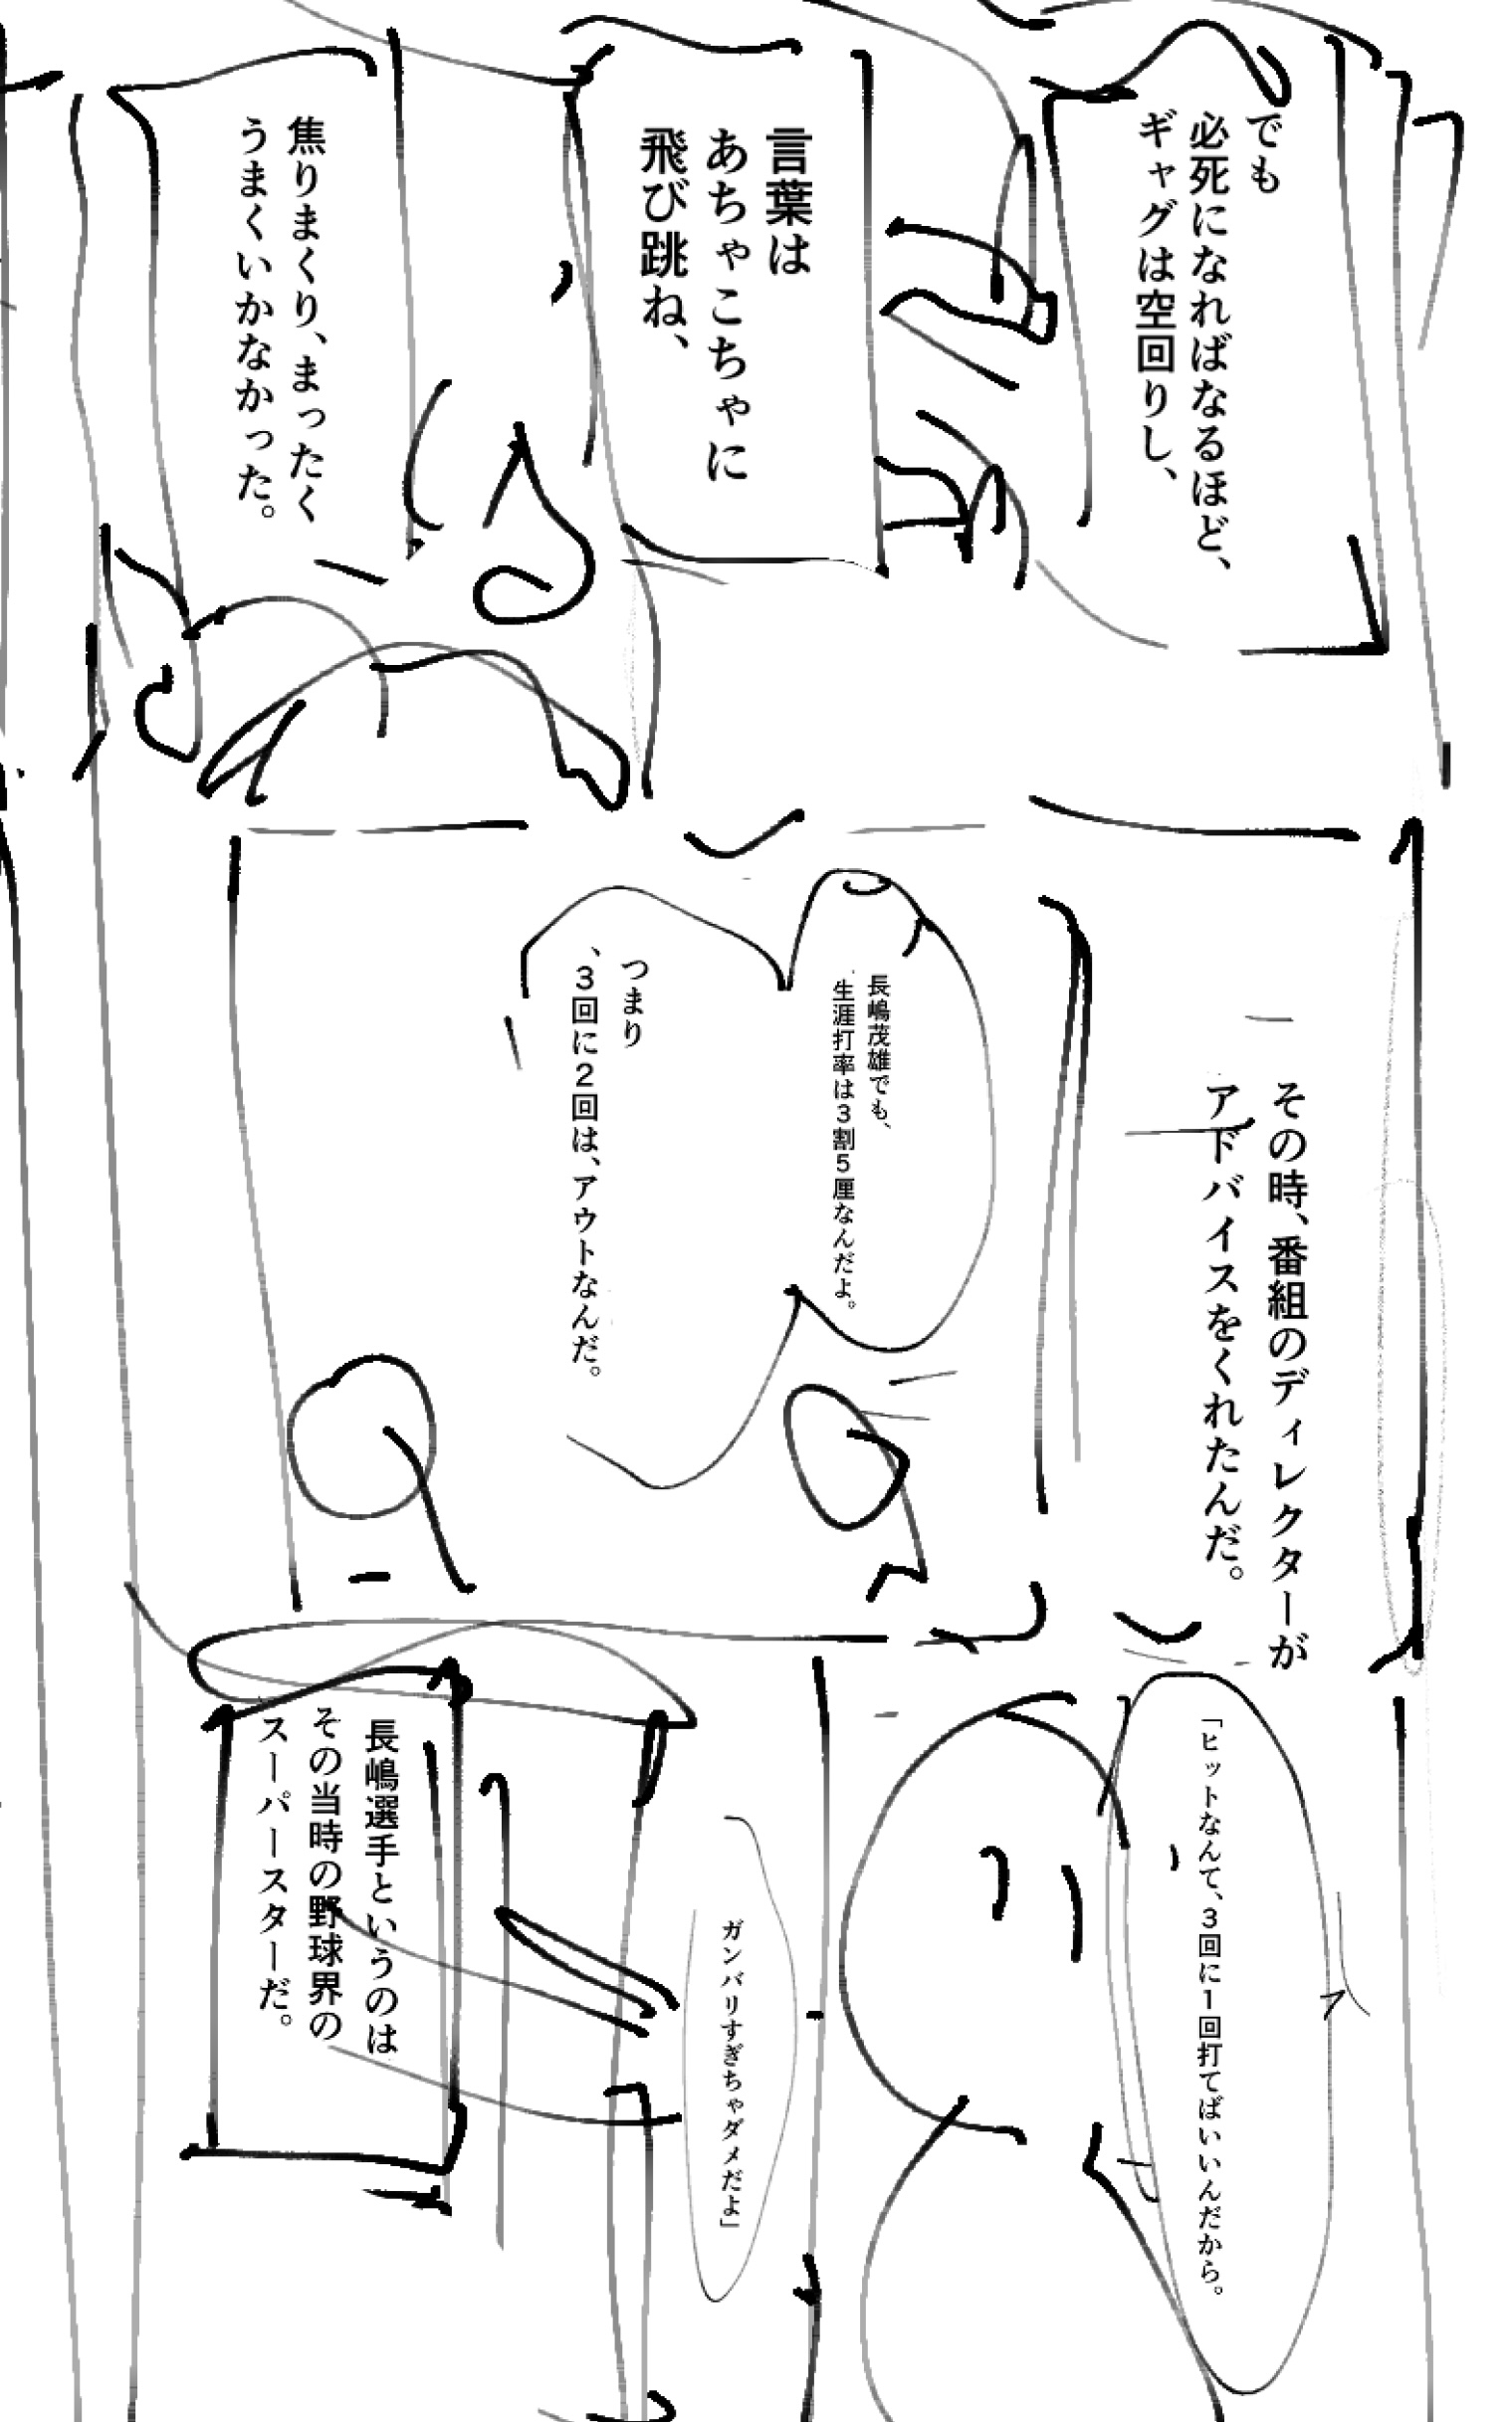 でも
必死になればなるほど、
ギャグは空回りし、
言葉は
あちゃこちゃに
飛び跳ね、
焦りまくり、まったく
うまくいかなかった。
その時、番組のディレクターが
アドバイスをくれたんだ。
長嶋茂雄でも、
生涯打率は3割5厘なんだよ。
つまり
、3回に2回は、アウトなんだ。
「ヒットなんて、3回に1回打てばいいんだから。
ガンバリすぎちゃダメだよ」
長嶋選手というのは
その当時の野球界の
スーパースターだ。